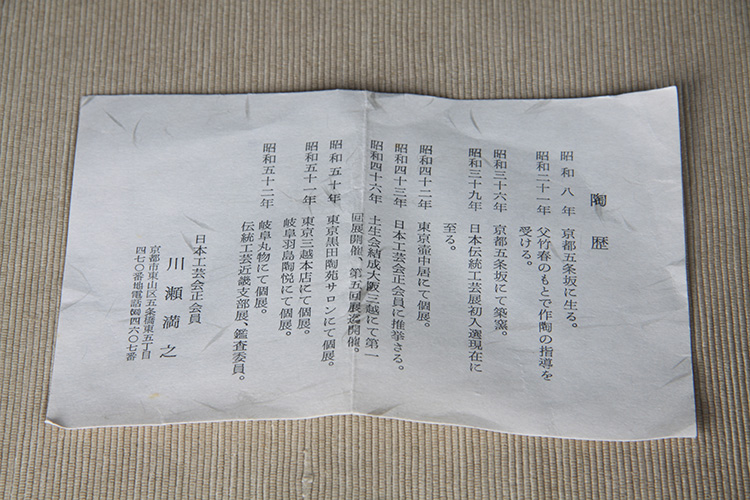 陶歴
昭和八年 京都五条坂に生る。
昭和二十一年 父竹春のもとで作陶の指導を
受ける。
昭和三十六年 京都五条坂にて築窯。
昭和三十九年 日本伝統工芸展初入選現在に
至る。
昭和四十二年 東京壷中居にて個展。
昭和四十三年 日本工芸会正会員に推挙さる。
昭和四十六年 土生会結成大阪三越にて第一
回展開催、第五回展迄開催。
昭和五十年 東京黒田陶苑サロンにて個展。
昭和五十一年 東京三越本店にて個展。
岐阜羽島陶悦にて個展。
昭和五十二年 岐阜丸物にて個展。
伝統工芸近畿支部展、鑑査委員。
日本工芸会正会員
川瀬満之
京都市東山区五条橋東五丁目
四七〇番地電話 四六〇七番